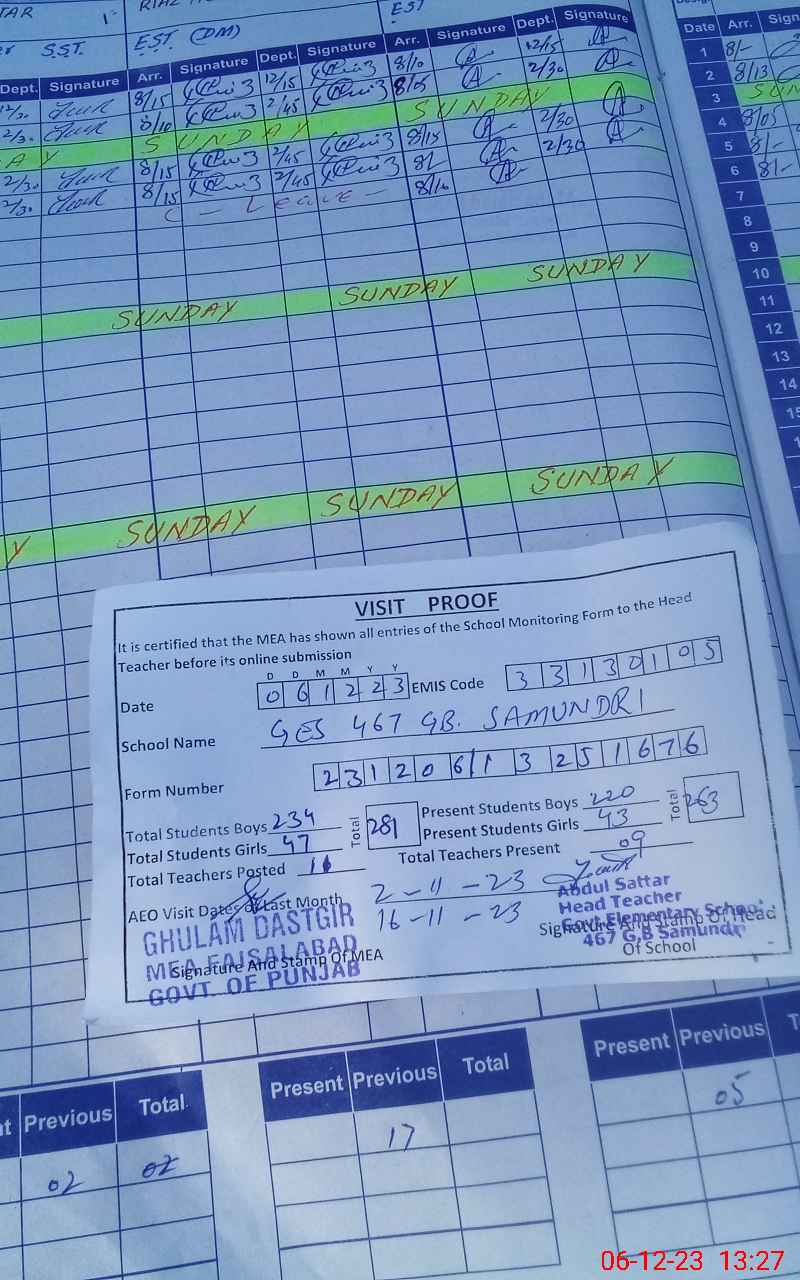 S.S.T.
EST (DM)
EST
Dept. Signature Arr. Signature Dept. Signature Arr. Signature Dept. Signature
Date Arr.
8/15 12/15 8/10 12/15
8/10 2/45 8/05 2/30
SUNDAY SUNDAY
8/15 2/45 8/15 2/30
8/15 2/45 8/ 2/30
Leave 8/10
1 8/-
2 8/13
3 SUN
4 8/05
5 8/-
6 8/-
7
8
9
10
11
12
13
14
SUNDAY SUNDAY SUNDAY
Y SUNDAY SUNDAY SUNDAY
VISIT PROOF
It is certified that the MEA has shown all entries of the School Monitoring Form to the Head
Teacher before its online submission
D D M M Y Y
Date 0 6 1 2 2 3 EMIS Code 3 3 1 3 0 1 0 5
School Name GES 467 GB. SAMUNDRI
Form Number 2 3 1 2 0 6 1 1 3 2 5 1 6 7 6
Total Students Boys 234 Total 281 Present Students Boys 220 Total 263
Total Students Girls 47 Present Students Girls 43
Total Teachers Posted 11 Total Teachers Present 09
AEO Visit Dates of Last Month 2-11-23
16-11-23
GHULAM DASTGIR
MEA FAISALABAD
GOVT. OF PUNJAB
Signature And Stamp Of MEA
Abdul Sattar
Head Teacher
Govt. Elementary School
467 G.B Samundri
Signature And Stamp Of Head
Of School
Previous Total
02 02
Present Previous Total
17
Present Previous
05
06-12-23 13:27